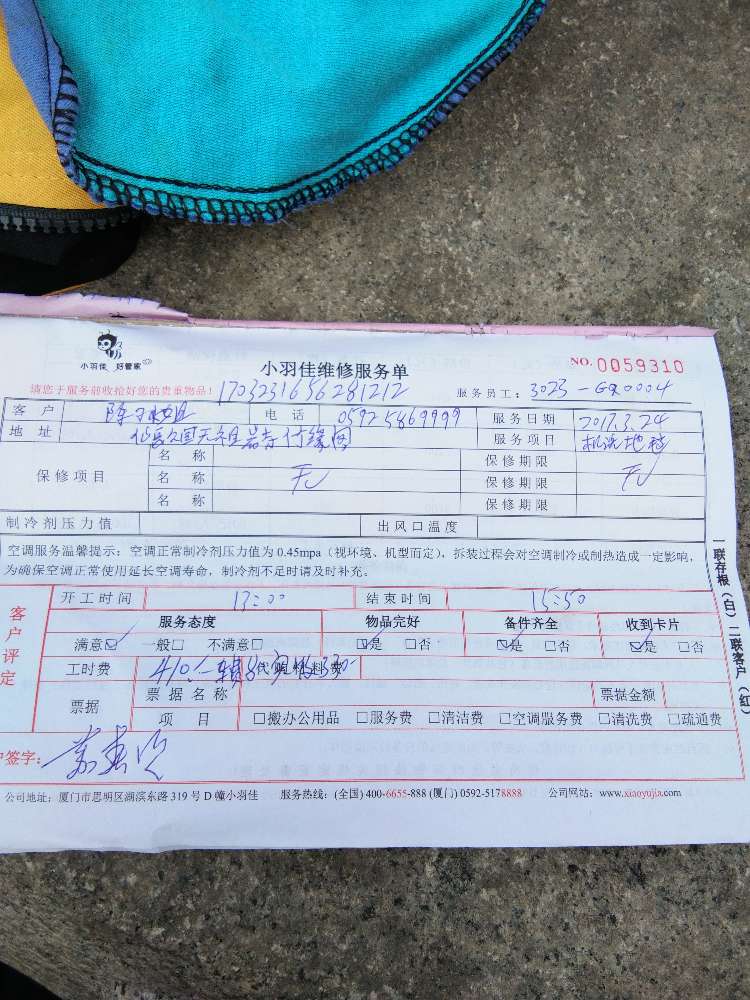 小羽佳 好管家
小羽佳维修服务单
NO. 0059310
请您于服务前收拾好您的贵重物品！ 1703231656281212 服务员工：3023-GR0004
客 户 电 话 0592 5869999 服务日期 2017.3.24
地 址 服务项目 机洗地毯
保修项目 名 称 无 保修期限 无
名 称 保修期限
名 称 保修期限
制冷剂压力值 出风口温度
空调服务温馨提示：空调正常制冷剂压力值为 0.45mpa（视环境、机型而定），拆装过程会对空调制冷或制热造成一定影响，
为确保空调正常使用延长空调寿命，制冷剂不足时请及时补充。
客户评定
开工时间 13:00 结束时间 15:50
服务态度 物品完好 备件齐全 收到卡片
满意☑ 一般□ 不满意□ ☑是 □否 ☑是 □否 ☑是 □否
工时费 410 代购材料费
票据 票据名称 票据金额
项 目 □搬办公用品 □服务费 □清洁费 □空调服务费 □清洗费 □疏通费
户签字：
一联存根（白）二联客户（红）
公司地址：厦门市思明区湖滨东路 319 号 D 幢小羽佳 服务热线：(全国) 400-6655-888 (厦门) 0592-5178888 公司网站：www.xiaoyujia.com